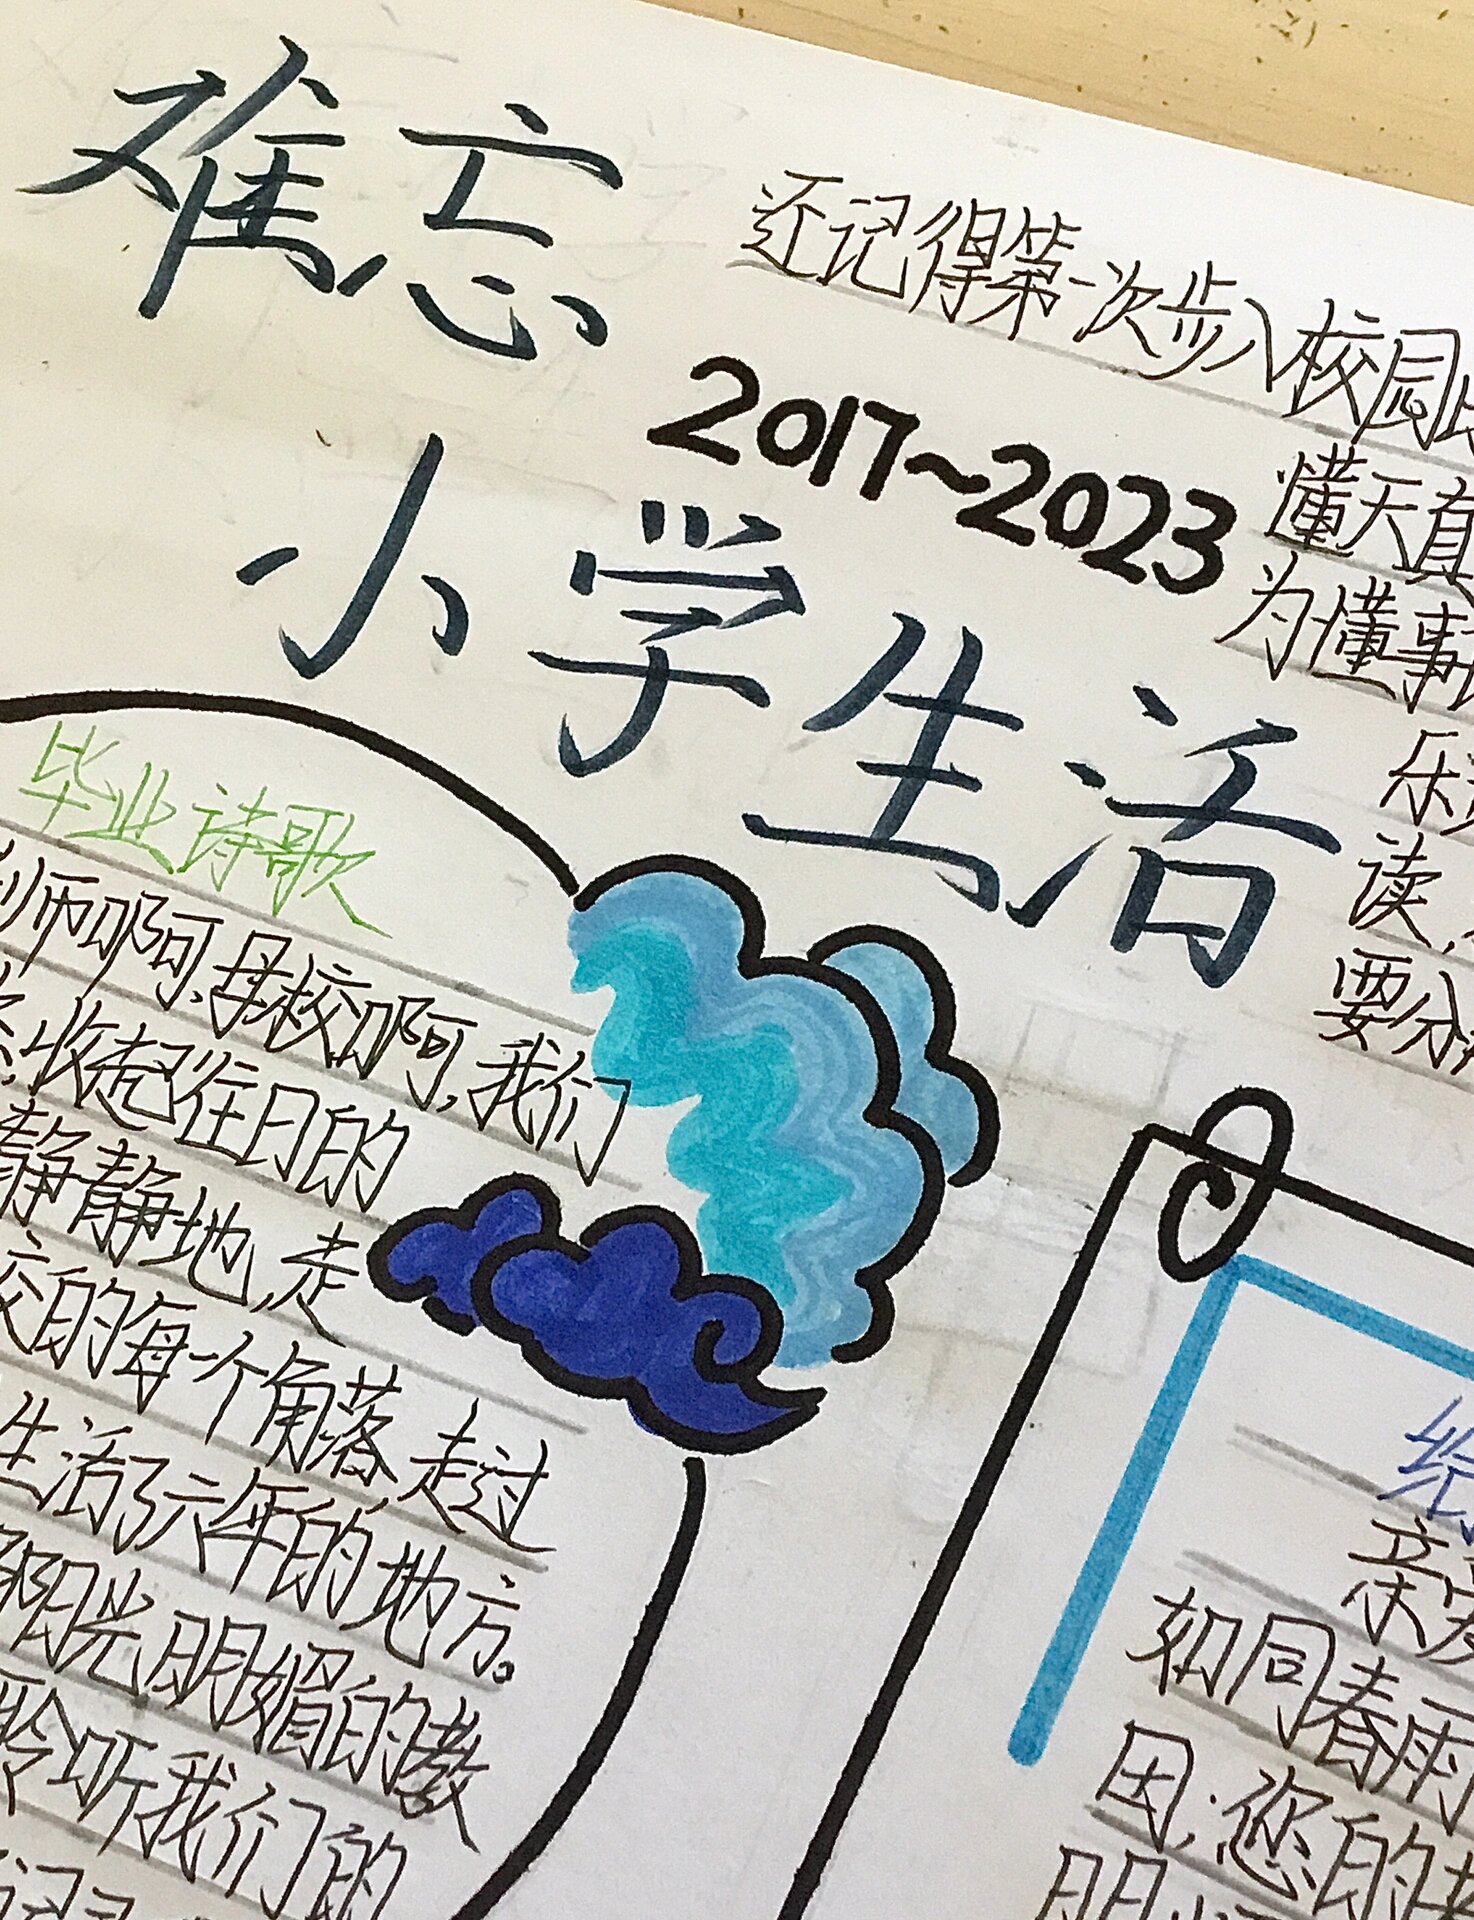 难忘
小学生活
2017~2023
还记得第一次步入校园
懂天真
为懂事
乐
读,
要分
毕业诗歌
师啊,母校啊,我们
收起往日的
静静地,走
校的每一个角落,走过
生活了六年的地方。
阳光明媚的教
聆听我们的
给
亲
如同春雨
田;您的
明